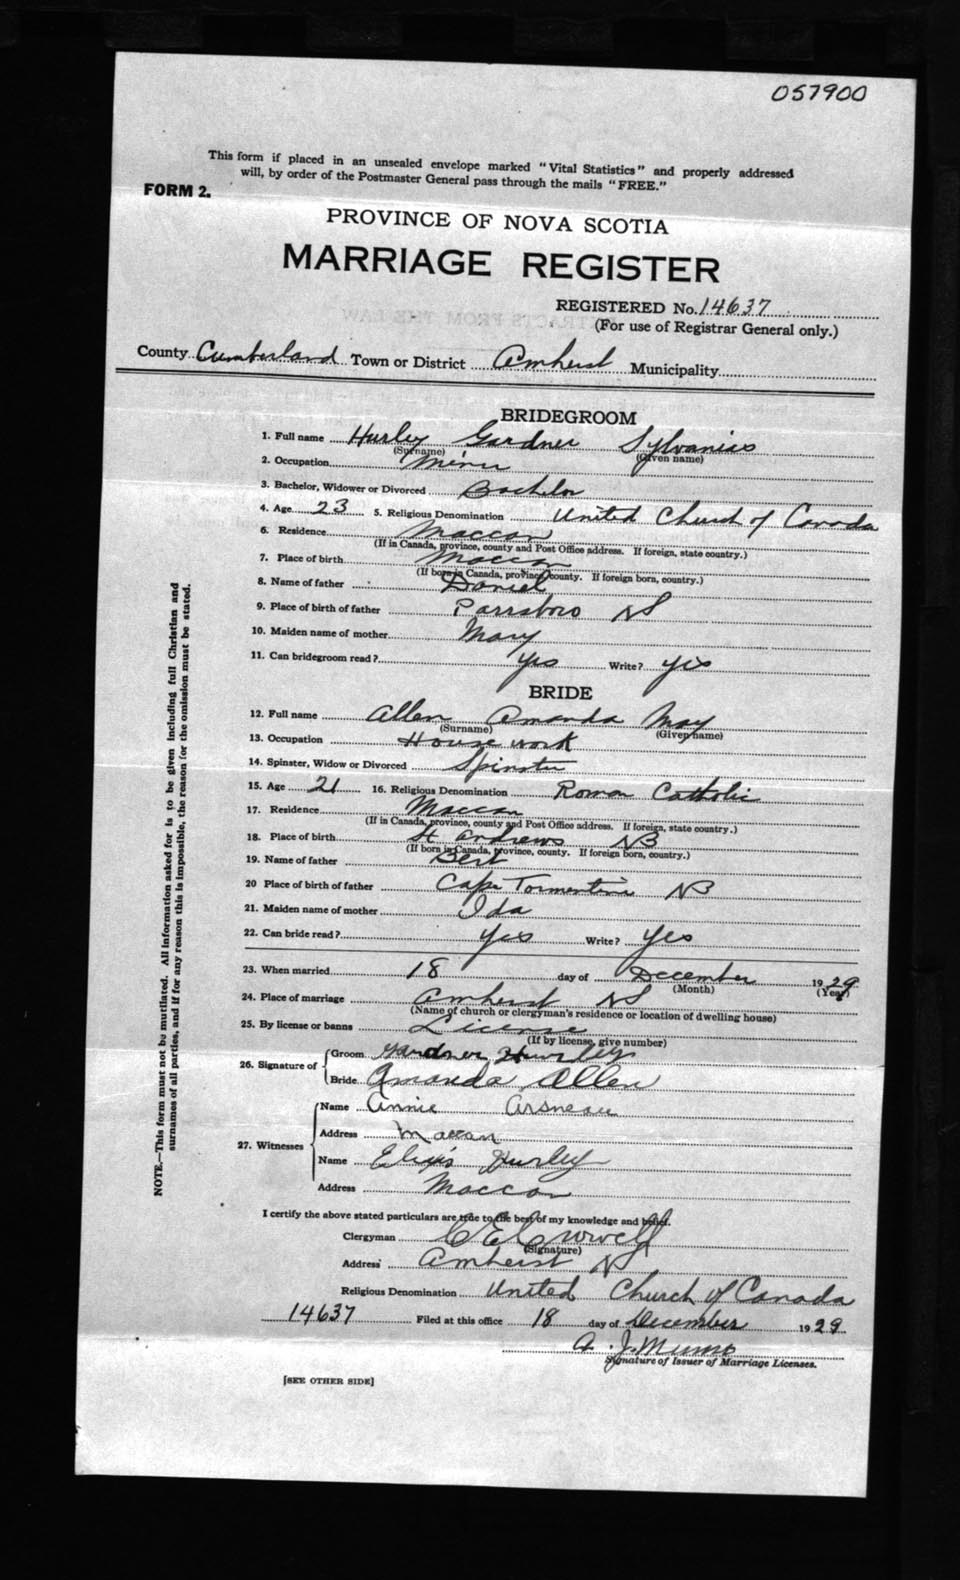 057900
This form if placed in an unsealed envelope marked "Vital Statistics" and properly addressed
will, by order of the Postmaster General pass through the mails "FREE."
FORM 2.
PROVINCE OF NOVA SCOTIA
MARRIAGE REGISTER
REGISTERED No. 14637
(For use of Registrar General only.)
County Cumberland Town or District Amherst Municipality
BRIDEGROOM
1. Full name Hurley Gardner
(Surname) (Given name)
2. Occupation Miner
3. Bachelor, Widower or Divorced Bachelor
4. Age 23 5. Religious Denomination United Church of Canada
6. Residence Maccan
(If in Canada, province, county and Post Office address. If foreign, state country.)
7. Place of birth Maccan
(If born in Canada, province, county. If foreign born, country.)
8. Name of father Daniel
9. Place of birth of father Parrsboro NS
10. Maiden name of mother Mary
11. Can bridegroom read? yes Write? yes
BRIDE
12. Full name Allen Amanda May
(Surname) (Given name)
13. Occupation House work
14. Spinster, Widow or Divorced Spinster
15. Age 21 16. Religious Denomination Roman Catholic
17. Residence Maccan
(If in Canada, province, county and Post Office address. If foreign, state country.)
18. Place of birth St Andrews NB
(If born in Canada, province, county. If foreign born, country.)
19. Name of father Bert
20 Place of birth of father Cape Tormentine NB
21. Maiden name of mother Ida
22. Can bride read? yes Write? yes
23. When married 18 day of December 1929
(Month) (Year)
24. Place of marriage Amherst NS
(Name of church or clergyman's residence or location of dwelling house)
25. By license or banns License
(If by license, give number)
26. Signature of Groom Gardner Hurley
Bride Amanda Allen
27. Witnesses
Name Annie Arsneau
Address Maccan
Name Hurley
Address Maccan
I certify the above stated particulars are true to the best of my knowledge and belief.
Clergyman C E Crowell
(Signature)
Address Amherst NS
Religious Denomination United Church of Canada
14637 Filed at this office 18 day of December 1929
A. J. Munro
Signature of Issuer of Marriage Licenses.
[SEE OTHER SIDE]
NOTE.—This form must not be mutilated. All information asked for is to be given including full Christian and
surnames of all parties, and if for any reason this is impossible, the reason for the omission must be stated.